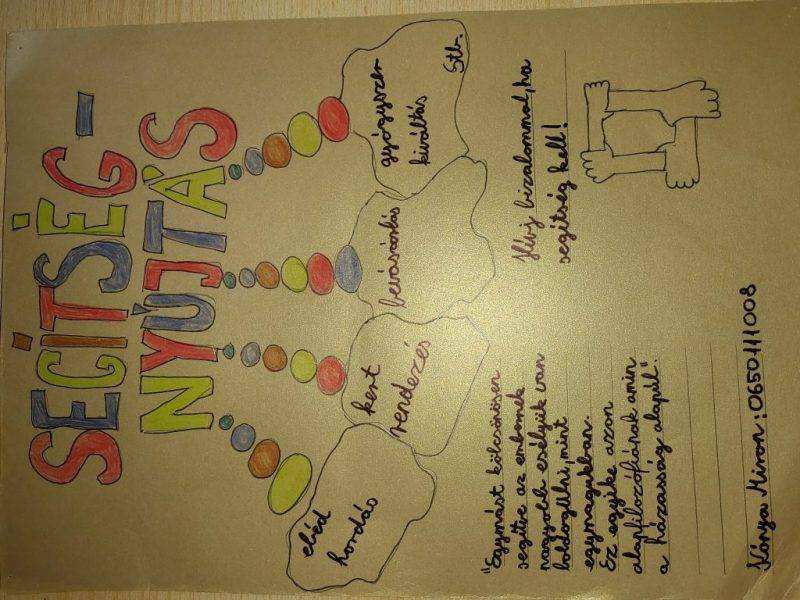 SEGÍTSÉG-
NYÚJTÁS
ebéd
hordás
kert
rendezés
bevásárlás
gyógyszer
kiváltás
Stb.
"Egymást kölcsönösen
segítve az embernek
nagyobb esélyük van
boldogulni, mint
egymagukban.
Ez egyike azon
alapfilozófiának amin
a házasság alapúl".
Hívj bizalommal, ha
segítség kell!
Kónya Miron: 0650111008